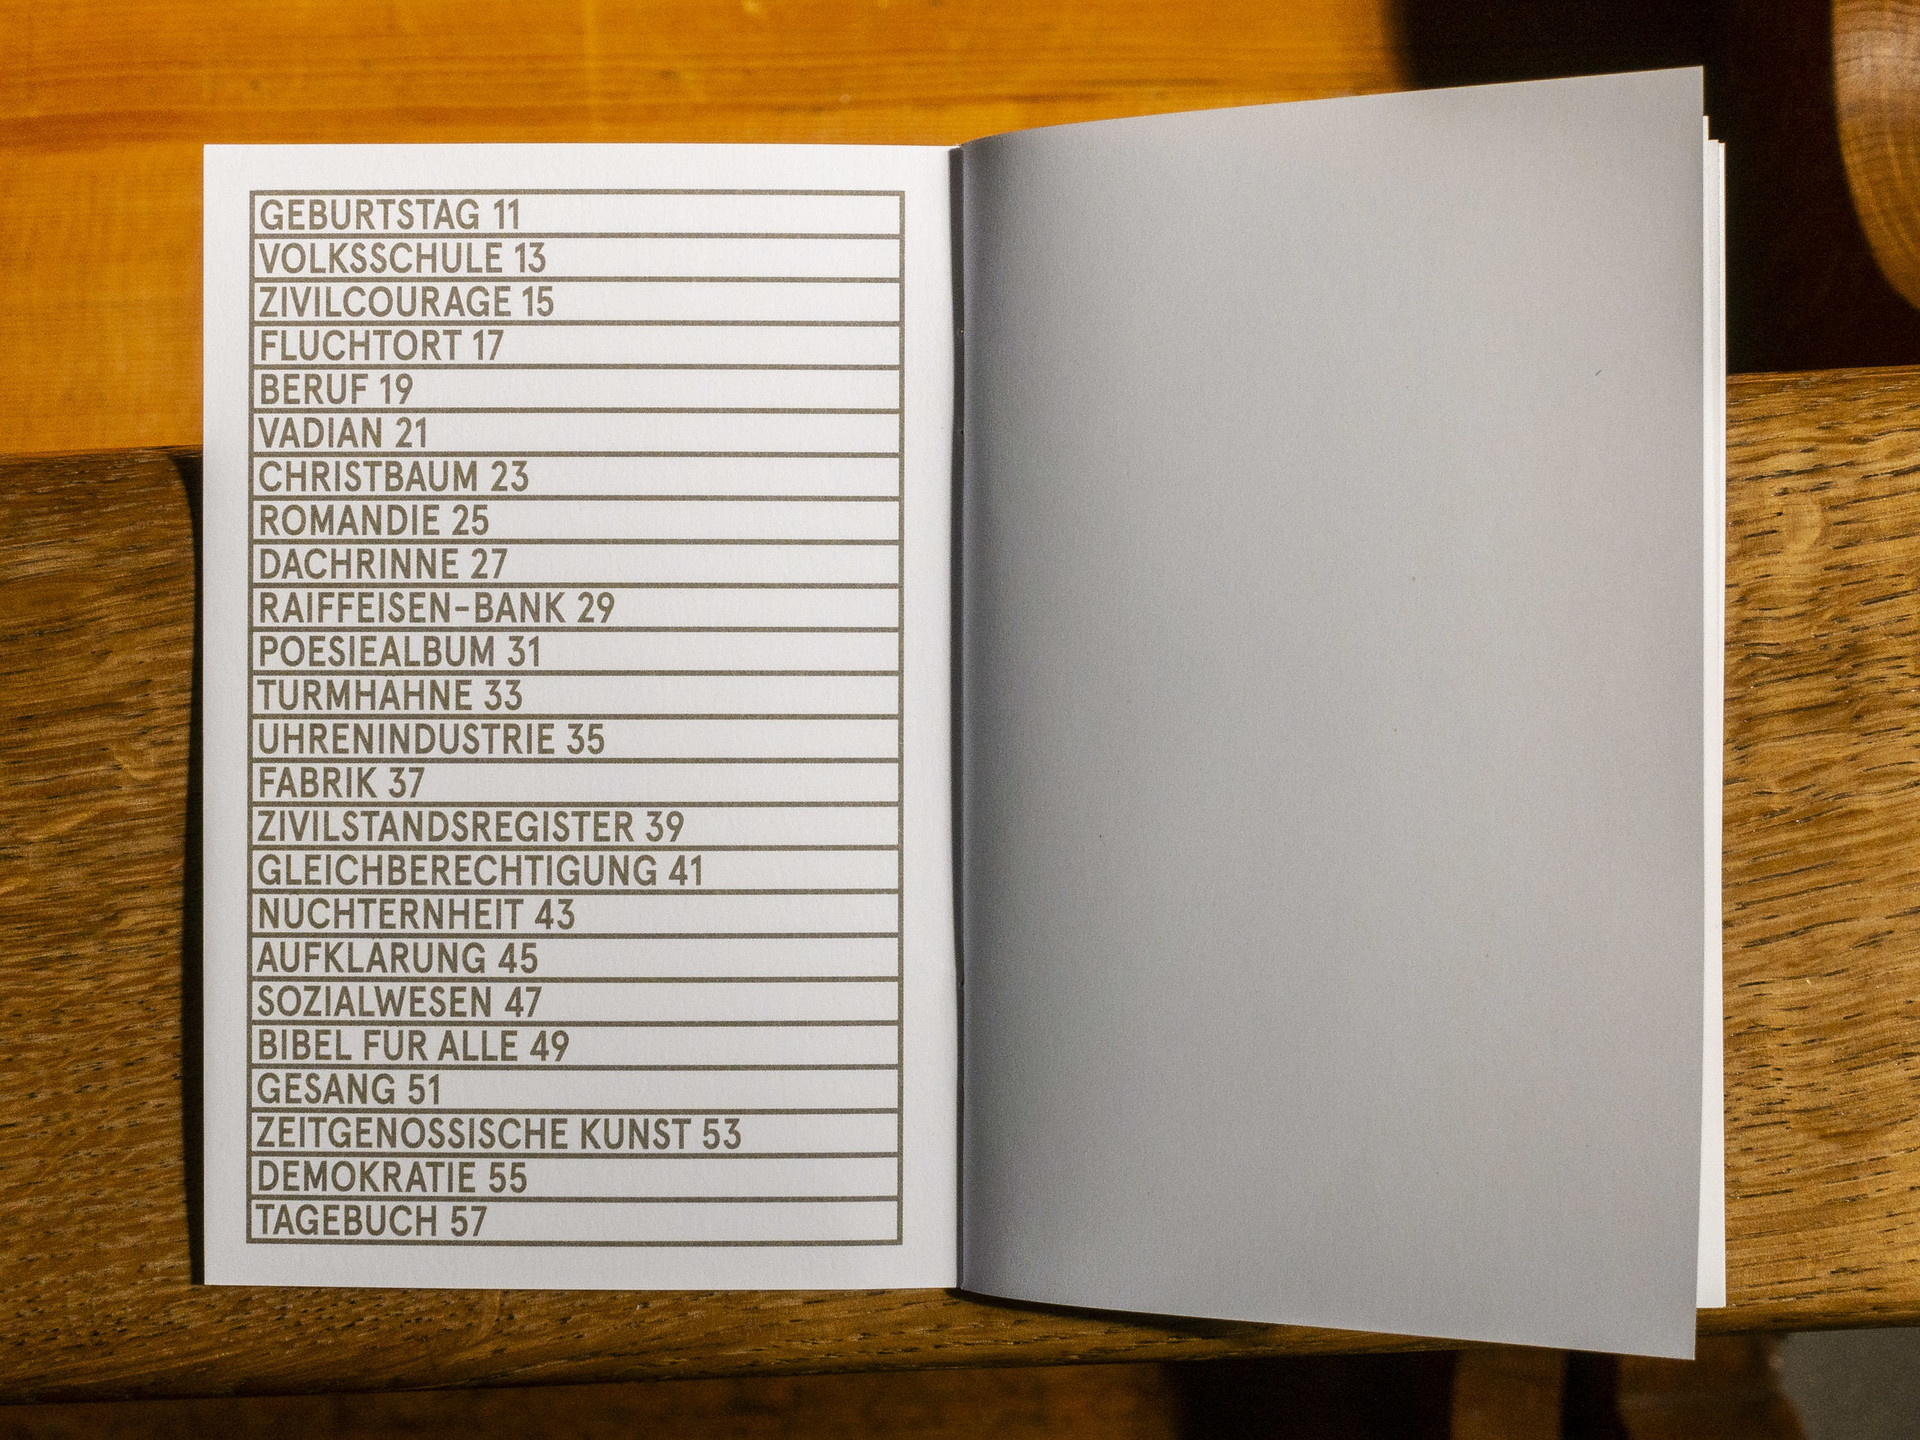 GEBURTSTAG 11
VOLKSSCHULE 13
ZIVILCOURAGE 15
FLUCHTORT 17
BERUF 19
VADIAN 21
CHRISTBAUM 23
ROMANDIE 25
DACHRINNE 27
RAIFFEISEN-BANK 29
POESIEALBUM 31
TURMHÄHNE 33
UHRENINDUSTRIE 35
FABRIK 37
ZIVILSTANDSREGISTER 39
GLEICHBERECHTIGUNG 41
NÜCHTERNHEIT 43
AUFKLÄRUNG 45
SOZIALWESEN 47
BIBEL FÜR ALLE 49
GESANG 51
ZEITGENÖSSISCHE KUNST 53
DEMOKRATIE 55
TAGEBUCH 57